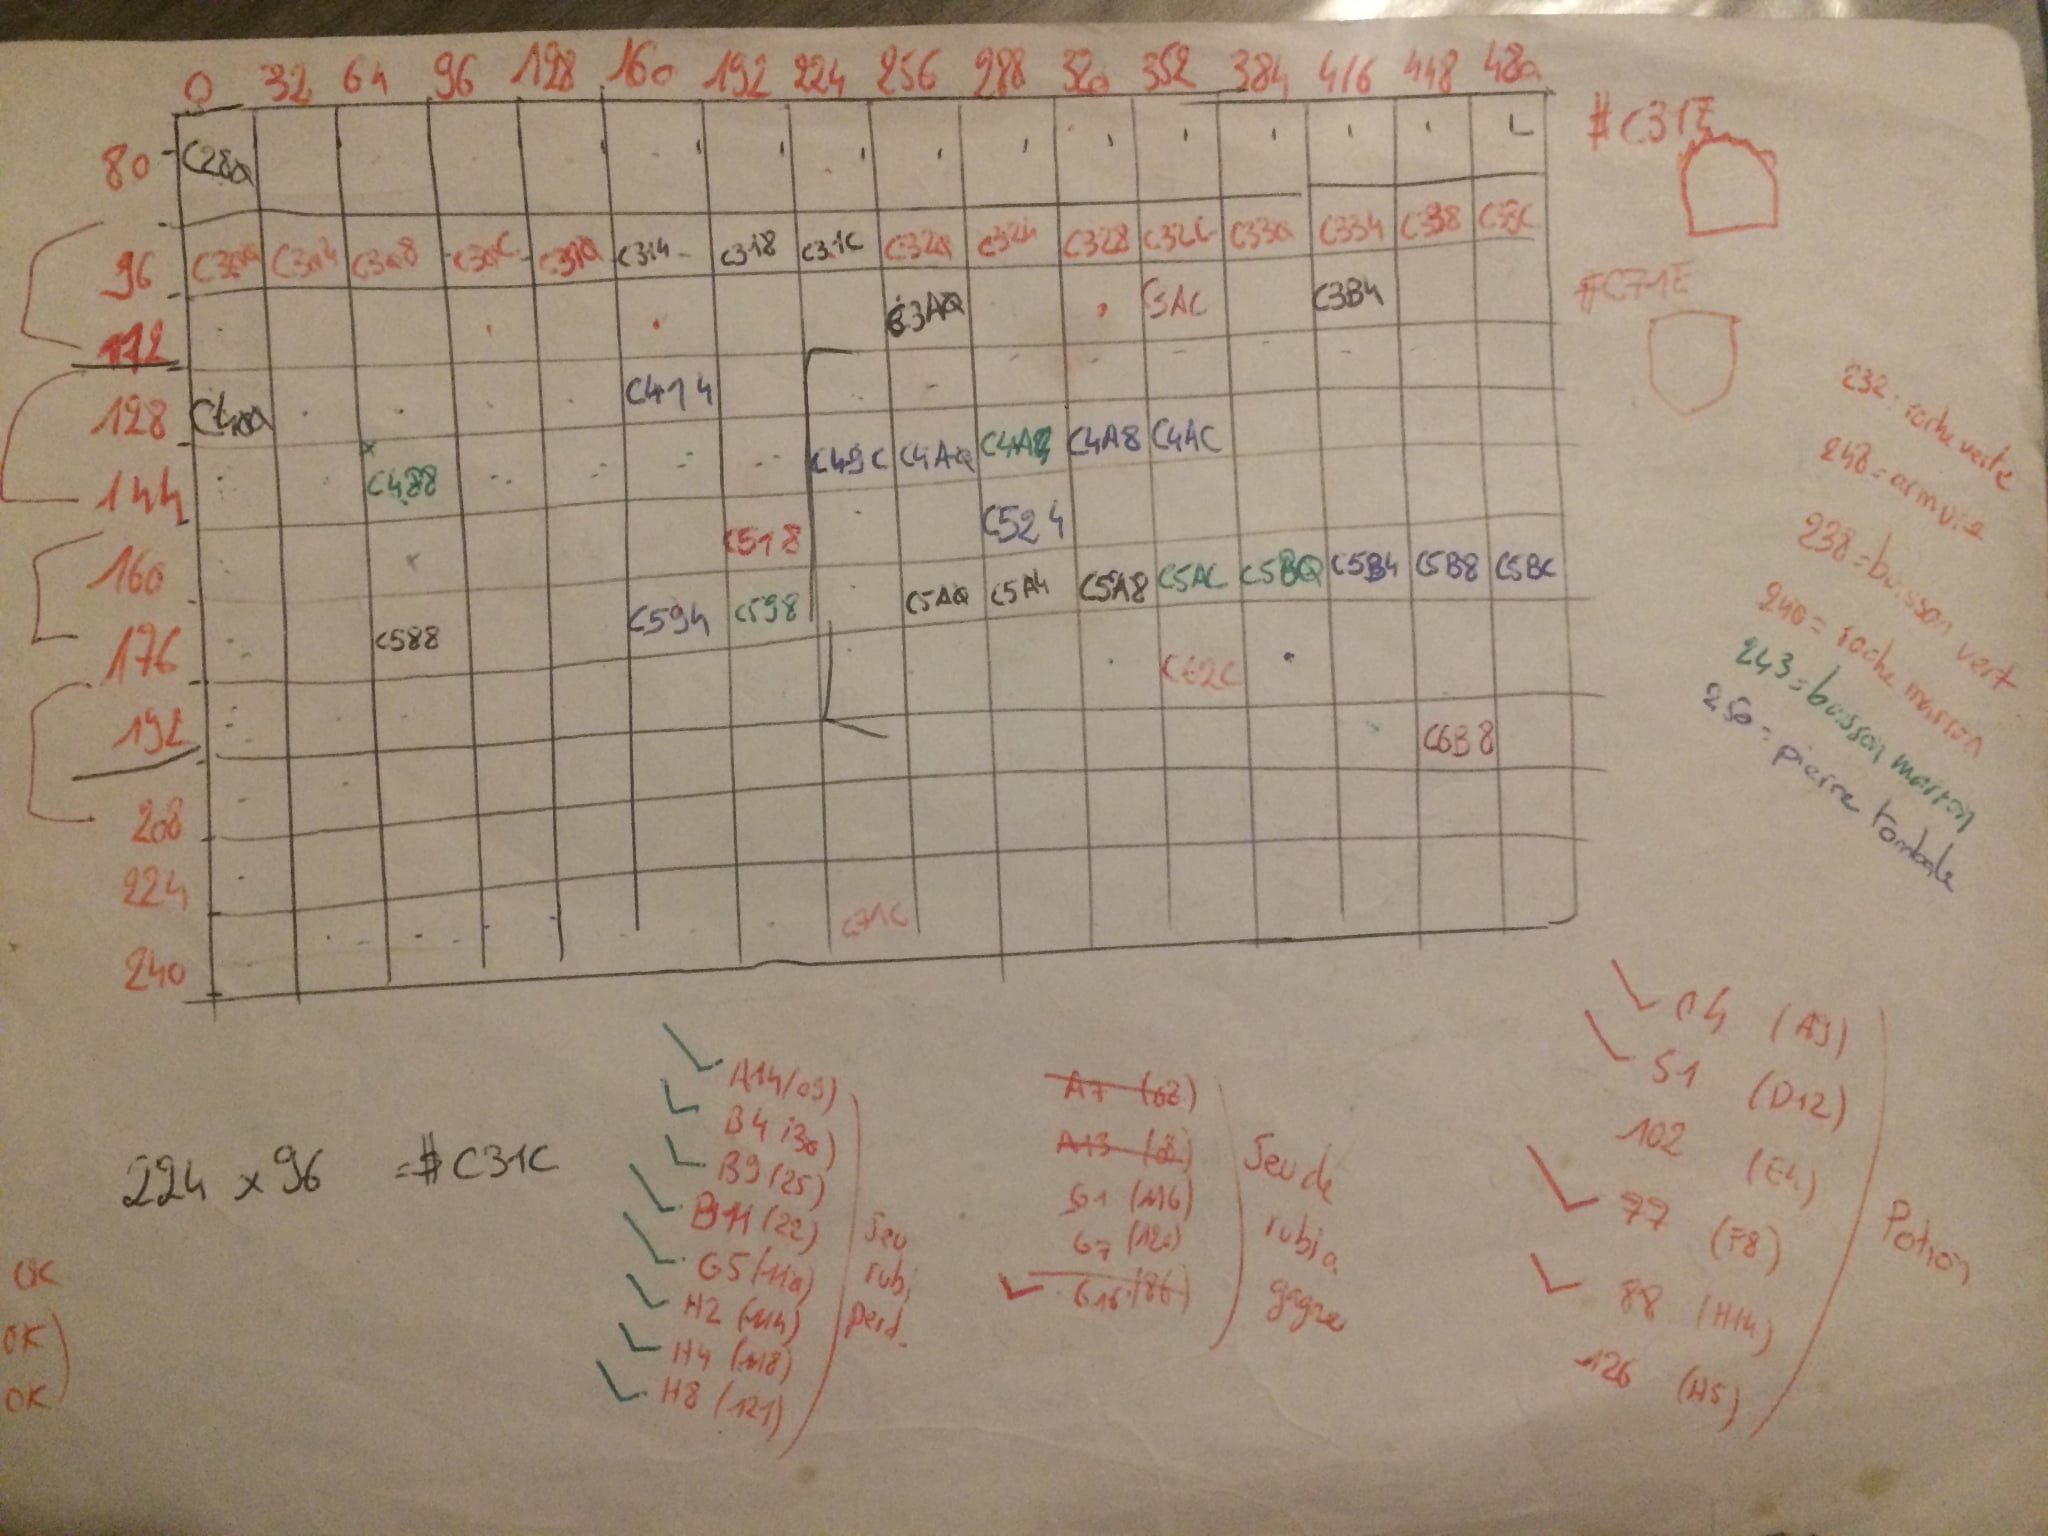 0 32 64 96 128 160 192 224 256 288 320 352 384 416 448 480
80 C280
96 C300 C304 C308 C30C C310 C314 C318 C31C C320 C324 C328 C32C C330 C334 C338 C33C
112 C3A0 C3AC C3B4
128 C400 C414
144 C488 C49C C4A0 C4A4 C4A8 C4AC
160 C518 C524
176 C588 C594 C598 C5A0 C5A4 C5A8 C5AC C5B0 C5B4 C5B8 C5BC
192 C62C
208 C6B8
224
240 C71C
#C31E
#C71E
232: roche verte
248 = armure
238 = buisson vert
240 = roche marron
243 = buisson marron
250 = pierre tombale
224 x 96 = #C31C
OK
OK
OK
A14 (09)
B4 (30)
B9 (25)
B11 (22)
G5 (110)
H2 (114)
H4 (118)
H8 (121)
Jeu
rubi
perd.
A7 (62)
A13 (08)
G1 (116)
G7 (120)
G16 (86)
Jeu de
rubis
gagne
04 (A9)
51 (D12)
102 (E4)
77 (F8)
88 (H14)
126 (H5)
Potion